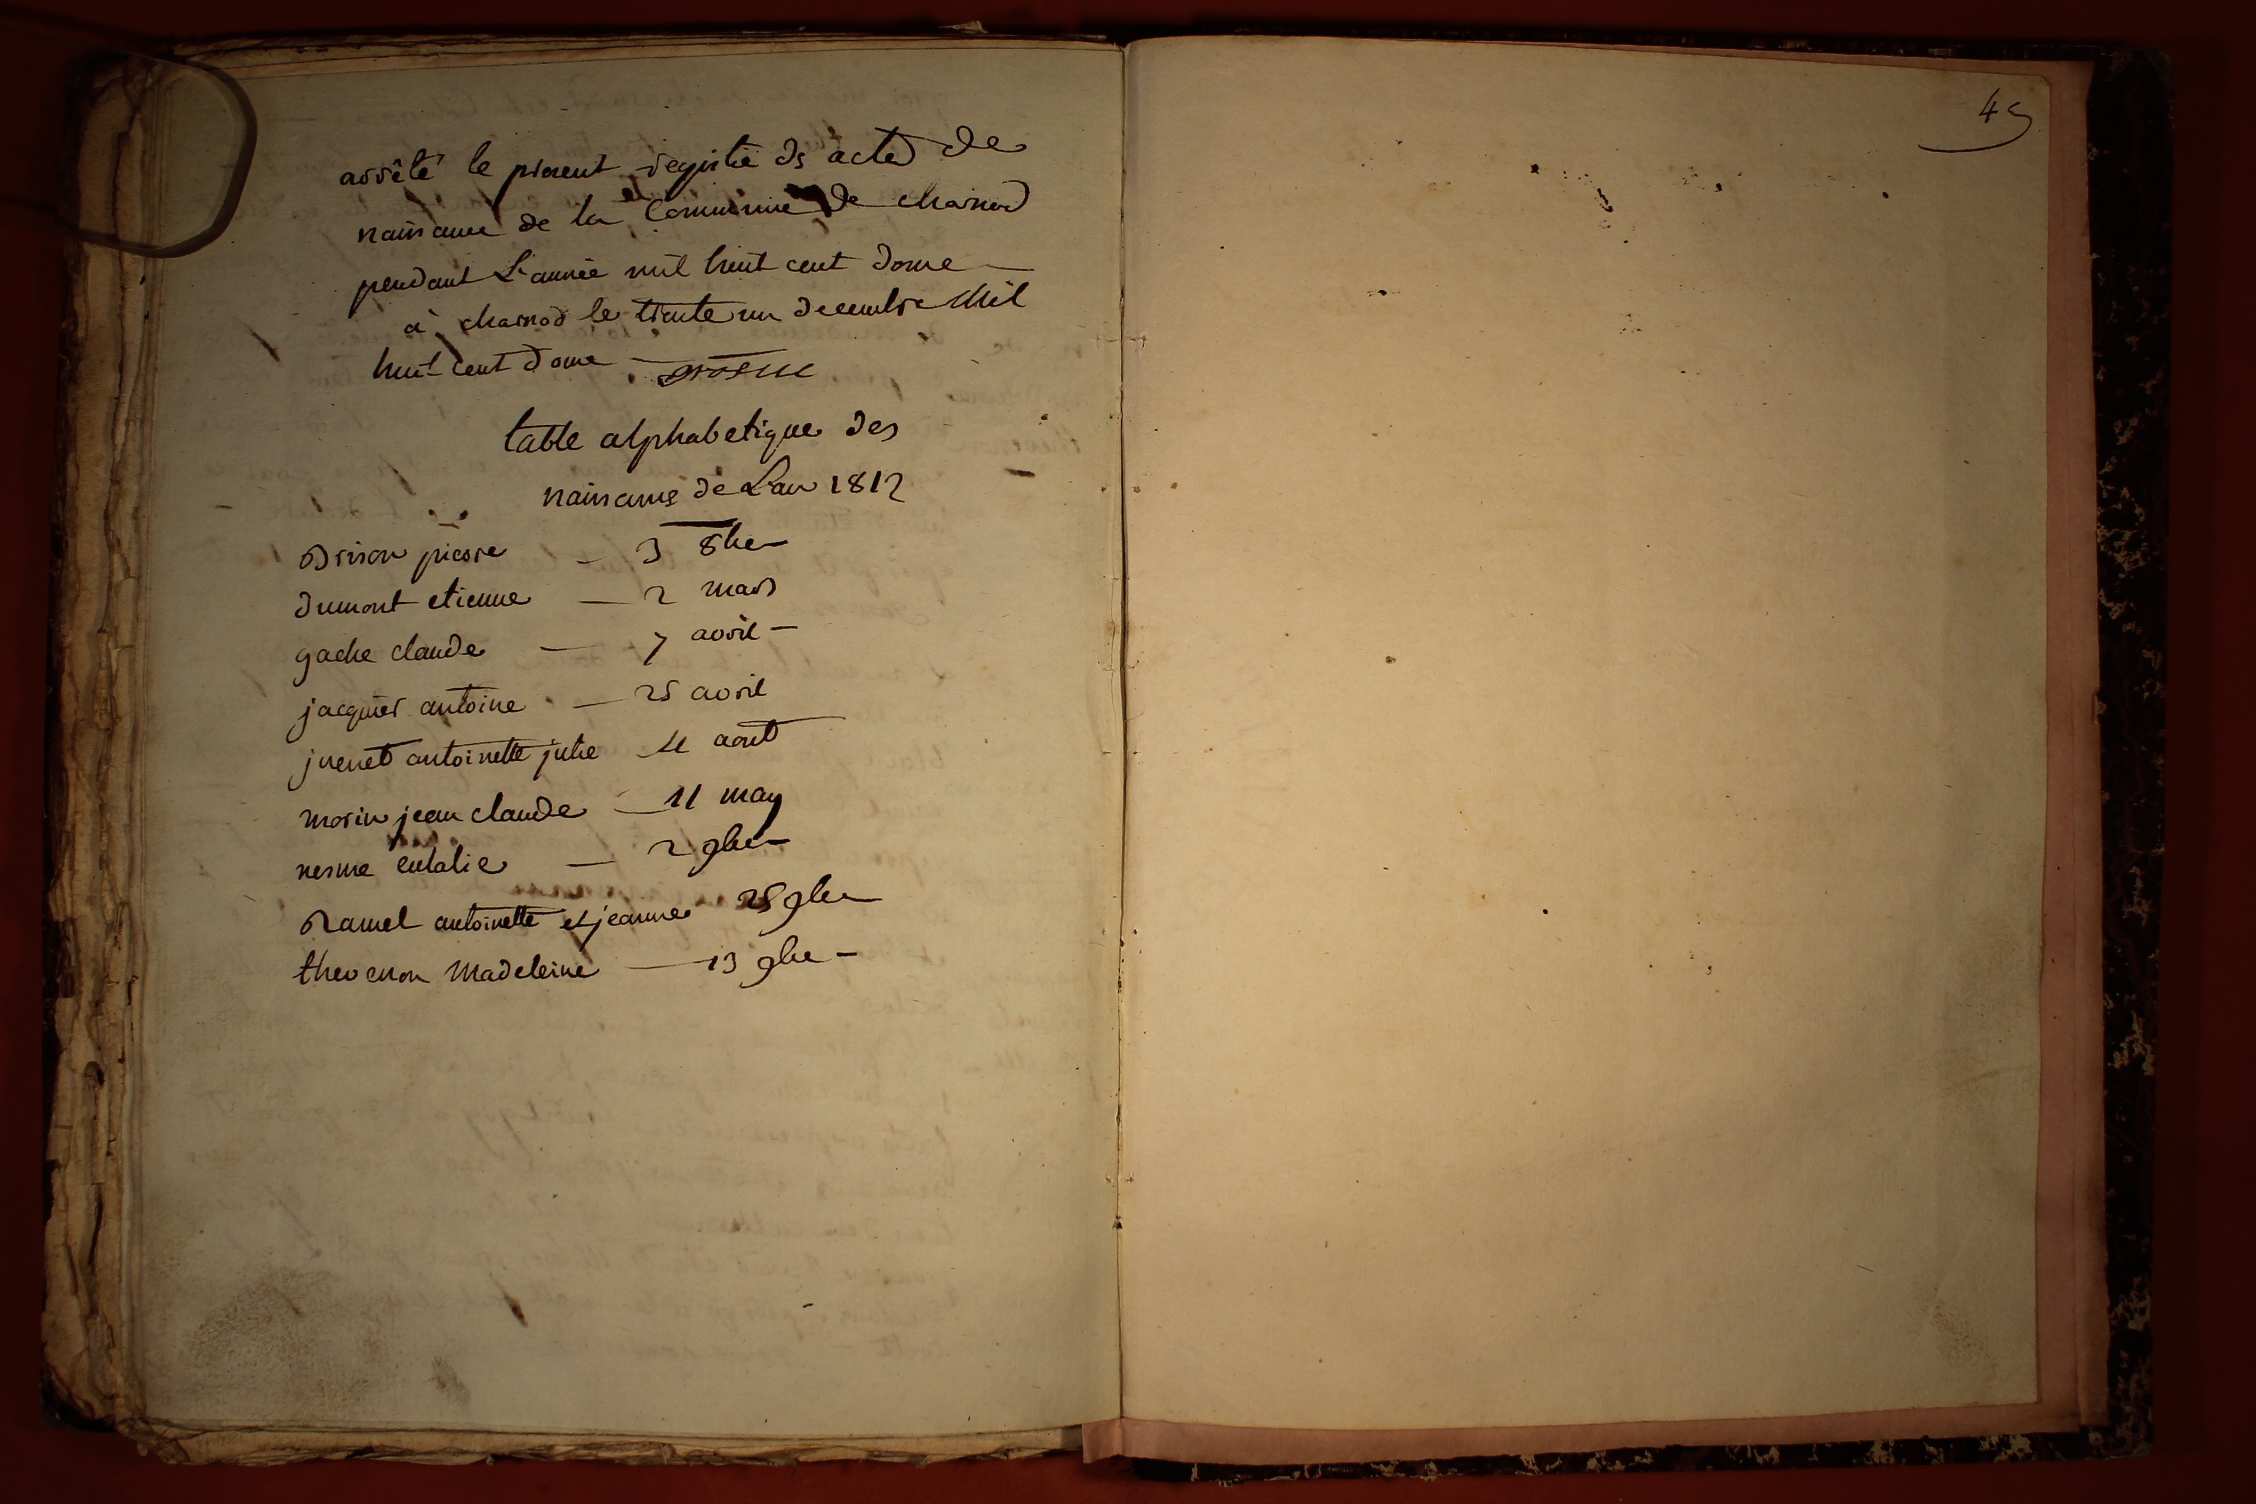 arrêté le present registre ds actes de
naissance de la Commune de charnod
pendant L'année mil huit cent douze
à charnod le trente un decembre Mil
huit cent douze
table alphabetique des
naissances de L'an 1812
Brison pierre — 3 8bre
dumont etienne — 2 mars
gache claude — 7 avril —
jacquier antoine — 25 avril
juenet antoinette julie 11 aout
morin jean claude — 11 may
nesme eulalie — 2 9bre
Ramel antoinette et jeanne 25 9bre
thevenon Madeleine — 13 9bre —
45